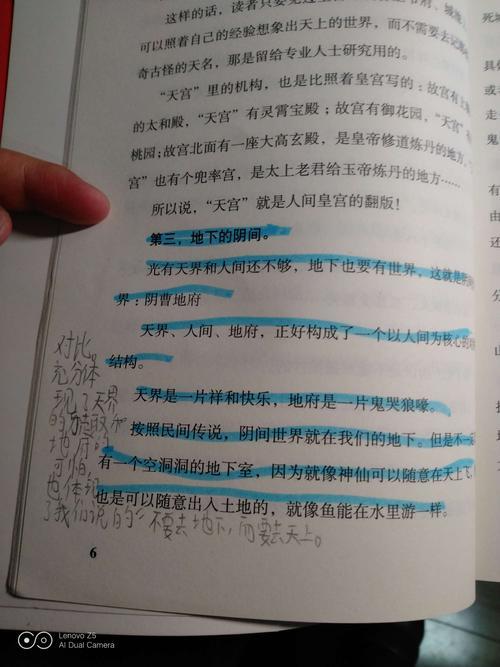 这样的话，读者只要
可以照着自己的经验想象出天上的世界，而不需要去记
奇古怪的天名，那是留给专业人士研究用的。
“天宫”里的机构，也是比照着皇宫写的：故宫有
的太和殿，“天宫”有灵霄宝殿；故宫有御花园，“天宫”
桃园；故宫北面有一座大高玄殿，是皇帝修道炼丹的地方，
宫”也有个兜率宫，是太上老君给玉帝炼丹的地方……
所以说，“天宫”就是人间皇宫的翻版！
第三，地下的阴间。
光有天界和人间还不够，地下也要有世界，这就是
界：阴曹地府
天界、人间、地府，正好构成了一个以人间为核心的
结构。
天界是一片祥和快乐，地府是一片鬼哭狼嚎。
按照民间传说，阴间世界就在我们的地下。但是不一
有一个空洞洞的地下室，因为就像神仙可以随意在天上飞，
也是可以随意出入土地的，就像鱼能在水里游一样。
对比。
充分体
现了天界
的
地府的
也体现
了我们说的：不要去地下，而要去天上。
6
死
具
或
走
鬼
有
Lenovo Z5
AI Dual Camera